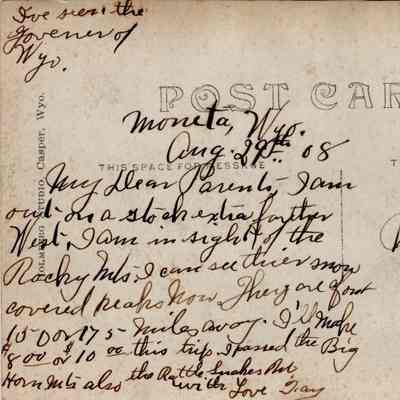 I've seen the
Governer of
Wyo.
POST CAR
Moneta, Wyo.
Aug. 29th 08
THIS SPACE FOR MESSAGE
My Dear Parents, I am
out on a stock extra farther
West. I am in sight of the
Rocky Mts. I can see their snow
covered peaks now. They are about
150 or 175 miles away. I'll make
$8.00 or $10.00 this trip. I passed the Big
Horn Mts also the Rattle Snakes
with Love
STUDIO, Casper, Wyo.